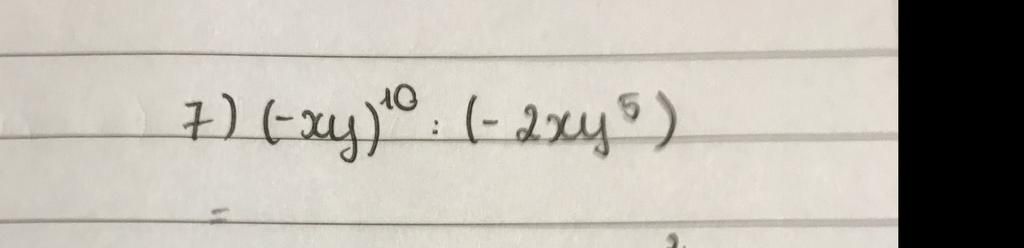 7) (-xy)¹⁰ : (-2xy⁵)
=